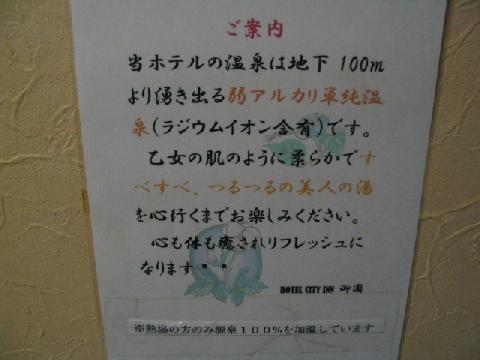 ご案内
当ホテルの温泉は地下 100m
より湧き出る弱アルカリ単純温
泉(ラジウムイオン含有)です。
乙女の肌のように柔らかです
べすべ、つるつるの美人の湯
を心行くまでお楽しみください。
心も体も癒されリフレッシュに
なります・・
HOTEL CITY INN 御園
※熱温の方のみ源泉100%を加温しています